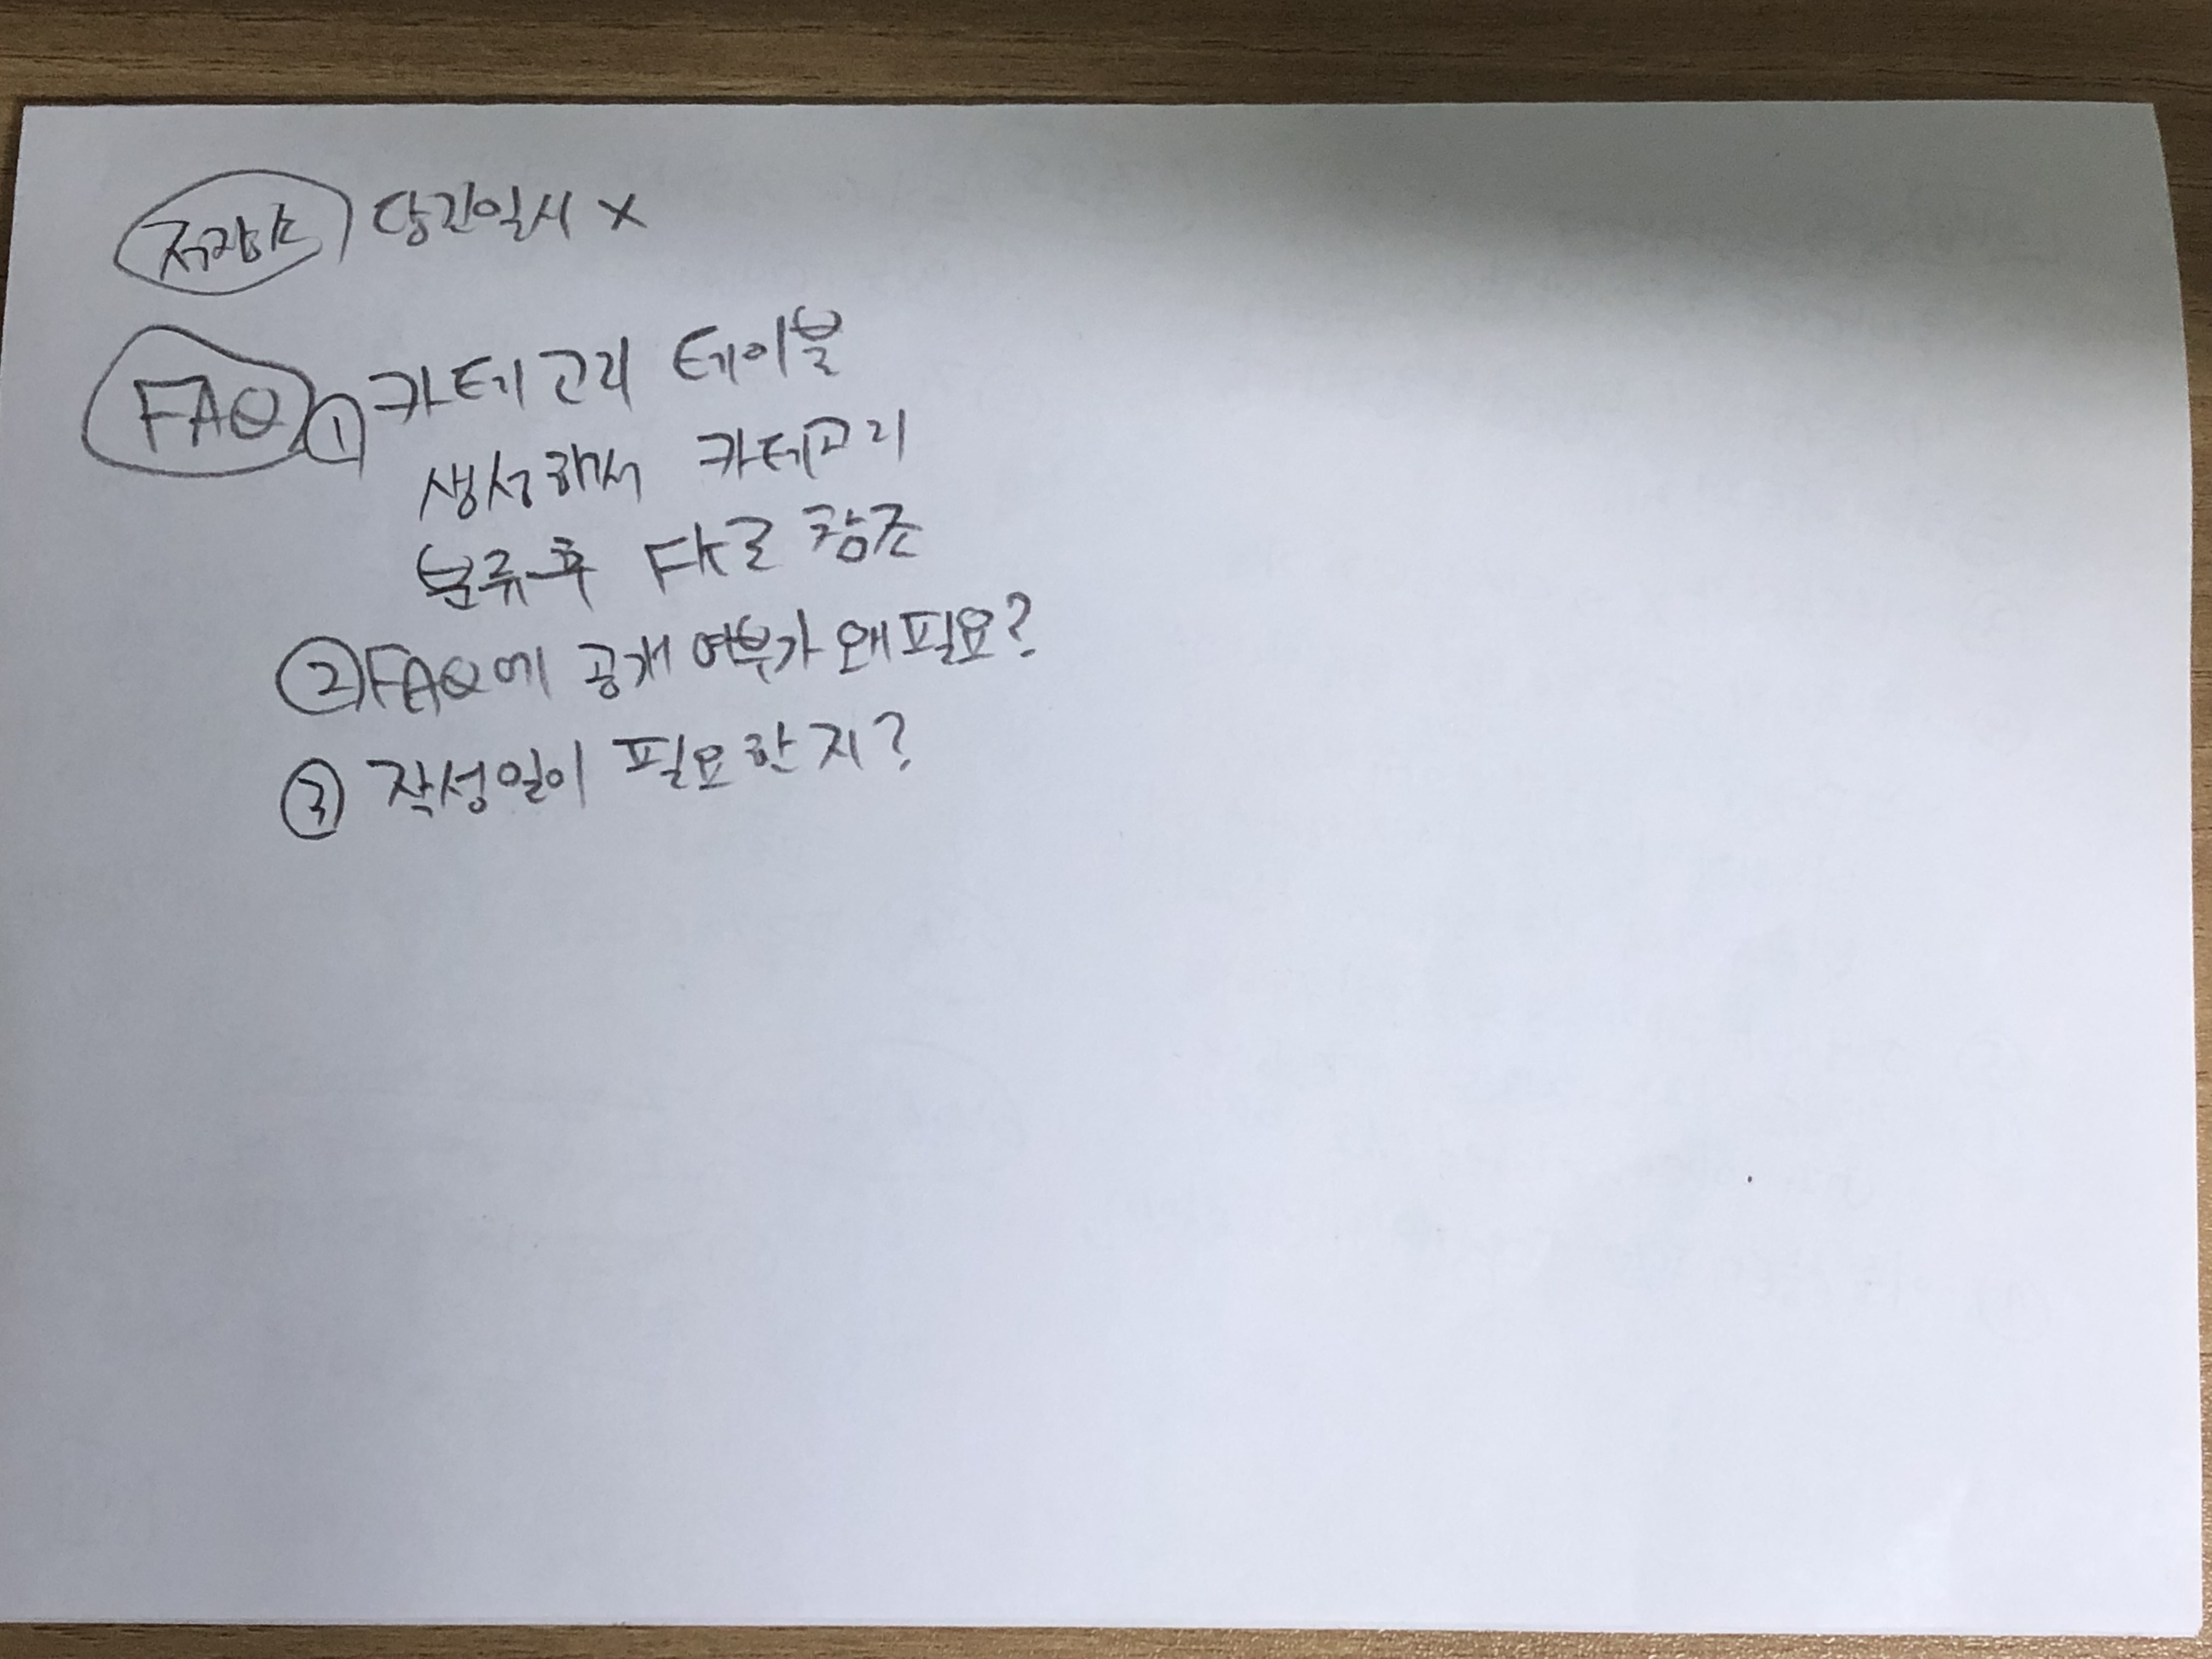 저장소 담긴일시 X
FAQ ① 카테고리 테이블
생성해서 카테고리
분류 후 FK로 참조
② FAQ에 공개 여부가 왜 필요?
③ 작성일이 필요한지?